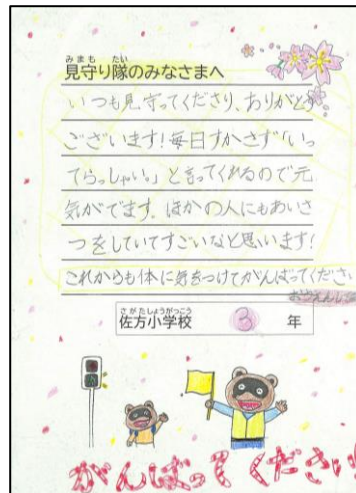 みまも たい
見守り隊のみなさまへ
いつも見守ってくださり、ありがとう
ございます!毎日すかさず「いっ
てらっしゃい。」と言ってくれるので元
気がでます。ほかの人にもあいさ
つをしていてすごいなと思います!
これからも体に気をつけてがんばってくださ
さがたしょうがっこう
佐方小学校 3 年
がんばってください